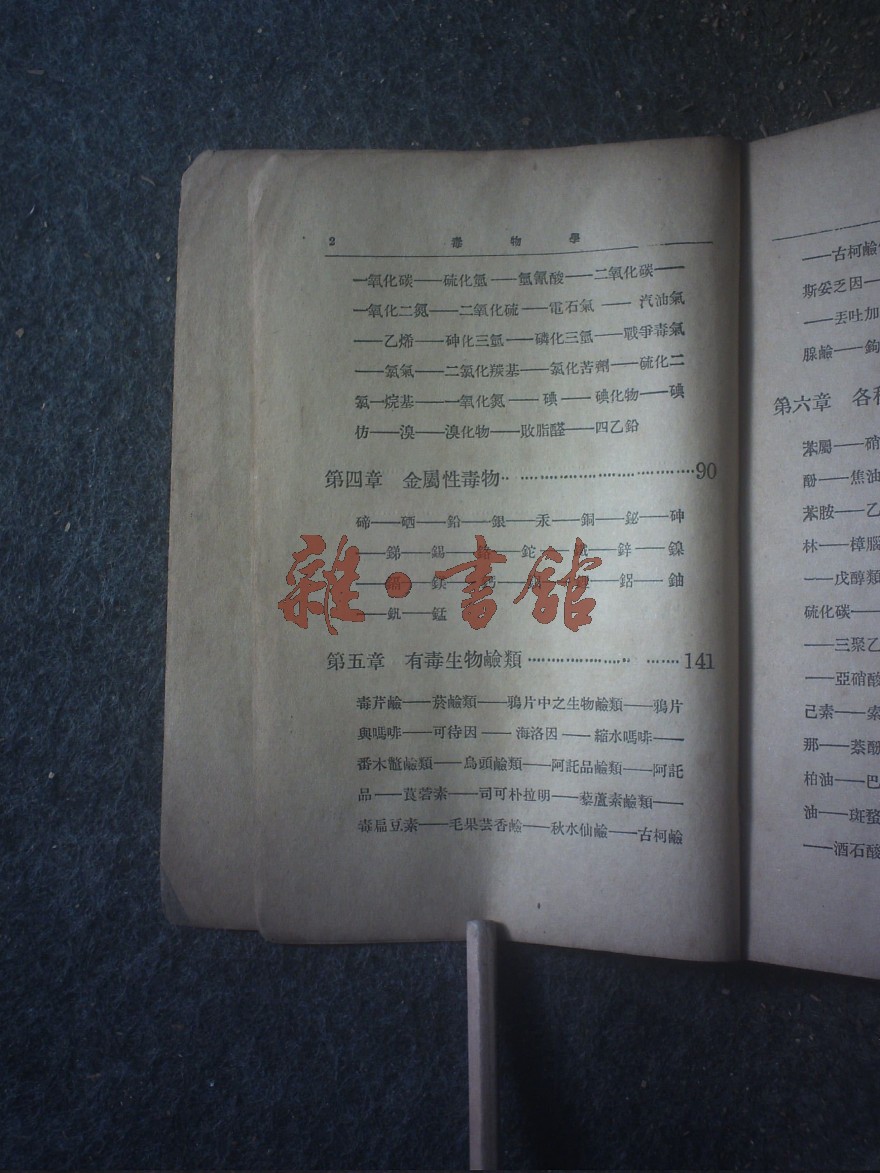 2 毒物學
一氧化碳——硫化氫——氫氰酸——二氧化碳——
一氧化二氮——二氧化硫——電石氣——汽油氣
——乙烯——砷化三氫——磷化三氫——戰爭毒氣
——氯氣——二氯化羰基——氯化苦劑——硫化二
氯一烷基——一氧化氮——碘——碘化物——碘
仿——溴——溴化物——敗脂醛——四乙鉛
第四章 金屬性毒物………………………90
碲——硒——鉛——銀——汞——銅——鉍——砷
——銻——錫——鉻——鉈——鐵——鋅——鎳
鋁——鈾
——釩——錳
第五章 有毒生物鹼類………………………141
毒芹鹼——菸鹼類——鴉片中之生物鹼類——鴉片
與嗎啡——可待因——海洛因——縮水嗎啡——
番木虌鹼類——烏頭鹼類——阿託品鹼類——阿託
品——莨菪素——司可朴拉明——藜蘆素鹼類——
毒扁豆素——毛果芸香鹼——秋水仙鹼——古柯鹼
雜·書館
——古柯鹼
斯妥乏因——
——丟吐加
腺鹼——鉤
第六章 各種
苯屬——硝
酚——焦油
苯胺——乙
林——樟腦
——戊醇類
硫化碳——
——三聚乙
——亞硝酸
己素——索
那——萘酚
柏油——巴
油——斑蝥
——酒石酸